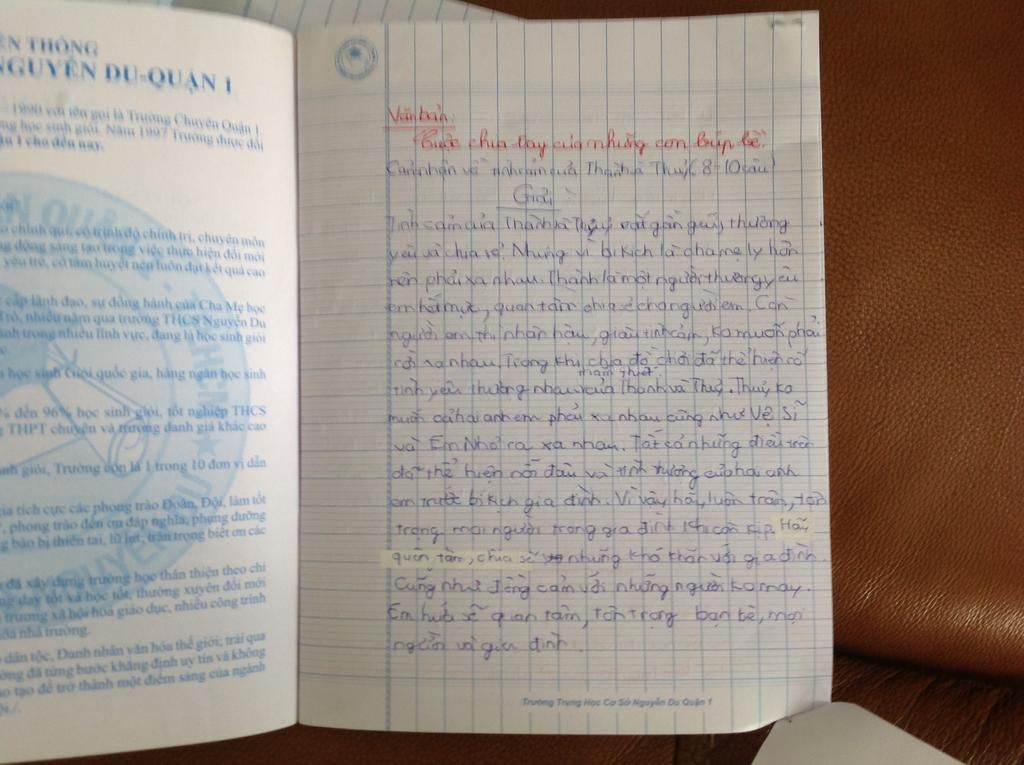 ỀN THỐNG
NGUYỄN DU-QUẬN 1
1990 với tên gọi là Trường Chuyên Quận 1.
ng học sinh giỏi. Năm 1997 Trường được đổi
ận 1 cho đến nay.
o chính qui, có trình độ chính trị, chuyên môn
g động sáng tạo trong việc thực hiện đổi mới
yêu trẻ, có tâm huyết nên luôn đạt kết quả cao
cấp lãnh đạo, sự đồng hành của Cha Mẹ học
Trò, nhiều năm qua trường THCS Nguyễn Du
ành trong nhiều lĩnh vực, đang là học sinh giỏi
h học sinh Giỏi quốc gia, hàng ngàn học sinh
% đến 96% học sinh giỏi, tốt nghiệp THCS
g THPT chuyên và trường danh giá khác cao
inh giỏi, Trường còn là 1 trong 10 đơn vị dẫn
gia tích cực các phong trào Đoàn, Đội, làm tốt
phong trào đền ơn đáp nghĩa, phụng dưỡng
g bào bị thiên tai, lũ lụt, trân trọng biết ơn các
đã xây dựng trường học thân thiện theo chỉ
ng dạy tốt và học tốt, thường xuyên đổi mới
trương xã hội hóa giáo dục, nhiều công trình
ủa nhà trường.
dân tộc, Danh nhân văn hóa thế giới; trải qua
ờng đã từng bước khẳng định uy tín và không
ào tạo để trở thành một điểm sáng của ngành
Văn bản:
Cuộc chia tay của những con búp bê.
Cảm nhận về tình cảm của Thành và Thuỷ (8-10 câu)
Giải:
Tình cảm của Thành và Thuỷ rất gần gũi, thương
yêu và chia sẻ. Nhưng vì bi kịch là cha mẹ ly hôn
nên phải xa nhau. Thành là một người thương yêu
em hết mực, quan tâm chia sẻ cho người em. Còn
người em thì nhân hậu, giàu tình cảm, ko muốn phải
rời xa nhau. Trong khi chia đồ chơi đã thể hiện có
tình yêu thương nhau thắm thiết của Thành và Thuỷ. Thuỷ ko
muốn cả hai anh em phải xa nhau cũng như Vệ Sĩ
và Em Nhỏ ra xa nhau. Tất cả những điều trên
đã thể hiện nỗi đau và tình thương của hai anh
em trước bi kịch gia đình. Vì vậy, hãy luôn trân, tôn
trọng mọi người trong gia đình khi còn kịp. Hãy
quan tâm, chia sẻ những khó khăn với gia đình.
Cũng như đồng cảm với những người ko may.
Em hứa sẽ quan tâm, tôn trọng bạn bè, mọi
người và gia đình.
Trường Trung Học Cơ Sở Nguyễn Du Quận 1